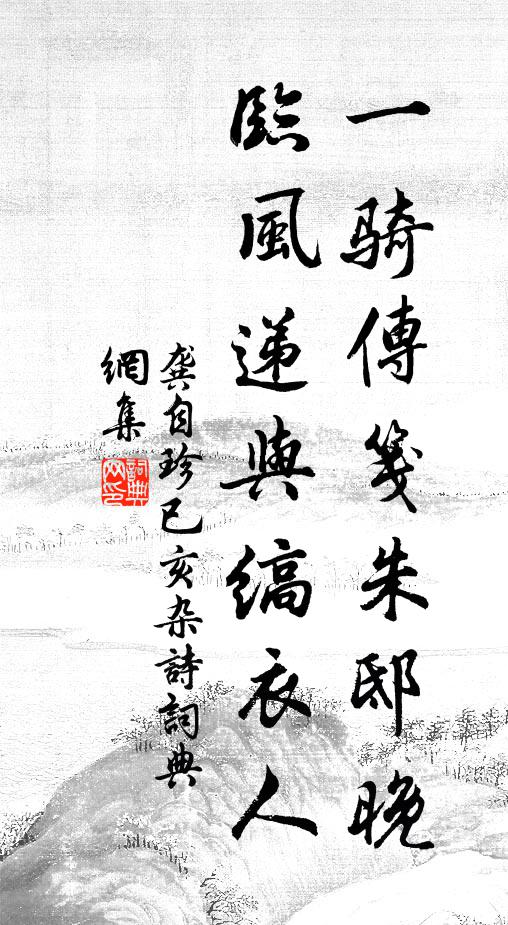 一騎傳箋朱邸晚
臨風遞與縞衣人
龔自珍己亥杂詩詞典
網集
詞典網印